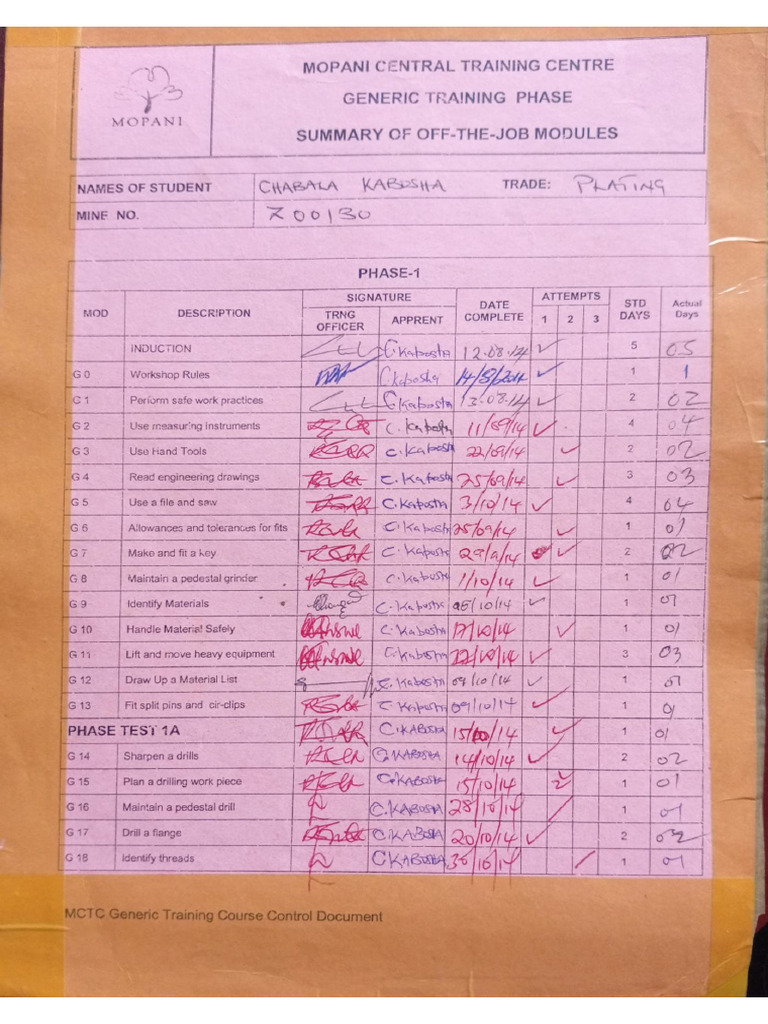 MOPANI
MOPANI CENTRAL TRAINING CENTRE
GENERIC TRAINING PHASE
SUMMARY OF OFF-THE-JOB MODULES
NAMES OF STUDENT CHABALA KABOSHA TRADE: PLATING
MINE NO. Z00130
PHASE-1
MOD DESCRIPTION SIGNATURE DATE COMPLETE ATTEMPTS STD DAYS Actual Days
TRNG OFFICER APPRENT 1 2 3
INDUCTION C.Kabosha 12.08.14 ✓ 5 05
G 0 Workshop Rules C.Kabosha 14/8/2014 ✓ 1 1
G 1 Perform safe work practices C.Kabosha 13.08.14 ✓ 2 02
G 2 Use measuring instruments C.Kabosha 11/09/14 ✓ 4 04
G 3 Use Hand Tools C.Kabosha 22/09/14 ✓ 2 02
G 4 Read engineering drawings C.Kabosha 25/09/14 ✓ 3 03
G 5 Use a file and saw C.Kabosha 3/10/14 ✓ 4 04
G 6 Allowances and tolerances for fits C.Kabosha 25/09/14 ✓ 1 01
G 7 Make and fit a key C.Kabosha 29/9/14 ✓ 2 02
G 8 Maintain a pedestal grinder C.Kabosha 1/10/14 ✓ 1 01
G 9 Identify Materials C.Kabosha 05/10/14 ✓ 1 01
G 10 Handle Material Safely C.Kabosha 17/10/14 ✓ 1 01
G 11 Lift and move heavy equipment C.Kabosha 22/10/14 ✓ 3 03
G 12 Draw Up a Material List C.Kabosha 09/10/14 ✓ 1 01
G 13 Fit split pins and cir-clips C.Kabosha 09/10/14 ✓ 1 01
PHASE TEST 1A C.KABOSHA 15/10/14 ✓ 1 01
G 14 Sharpen a drills C.KABOSHA 14/10/14 ✓ 2 02
G 15 Plan a drilling work piece C.KABOSHA 15/10/14 1 01
G 16 Maintain a pedestal drill C.KABOSHA 28/10/14 1 01
G 17 Drill a flange C.KABOSHA 20/10/14 ✓ 2 02
G 18 Identify threads C.KABOSHA 30/10/14 1 01
MCTC Generic Training Course Control Document